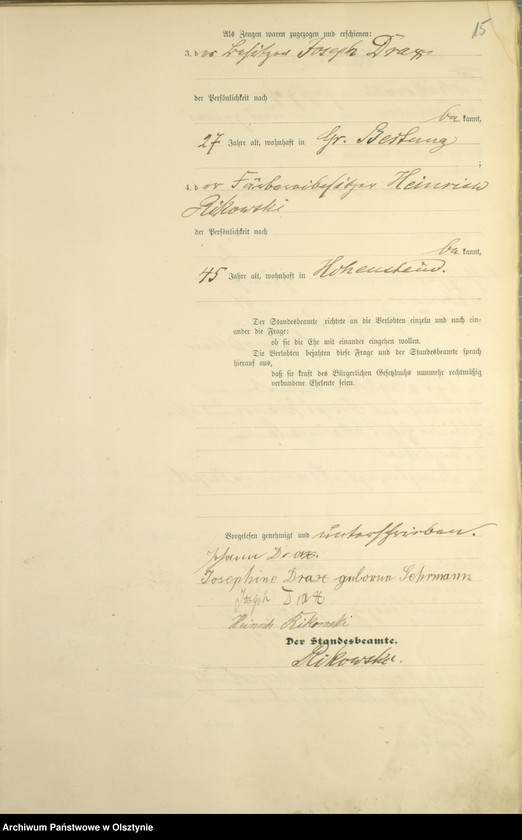 15
Als Zeugen waren zugezogen und erschienen:
3. der Besitzer Joseph Drax
der Persönlichkeit nach
be kannt,
27 Jahre alt, wohnhaft in Gr. Bestung
;
4. der Färbereibesitzer Heinrich
Rikowski
der Persönlichkeit nach
be kannt,
45 Jahre alt, wohnhaft in Hohenstein.
Der Standesbeamte richtete an die Verlobten einzeln und nach ein-
ander die Frage:
ob sie die Ehe mit einander eingehen wollen.
Die Verlobten bejahten diese Frage und der Standesbeamte sprach
hierauf aus,
daß sie kraft des Bürgerlichen Gesetzbuchs nunmehr rechtmäßig
verbundene Eheleute seien.
Vorgelesen, genehmigt und unterschrieben.
Johann Drax.
Josephine Drax geborene Lehrmann
Joseph Drax
Heinrich Rikowski
Der Standesbeamte.
Rikowski.
Archiwum Państwowe w Olsztynie